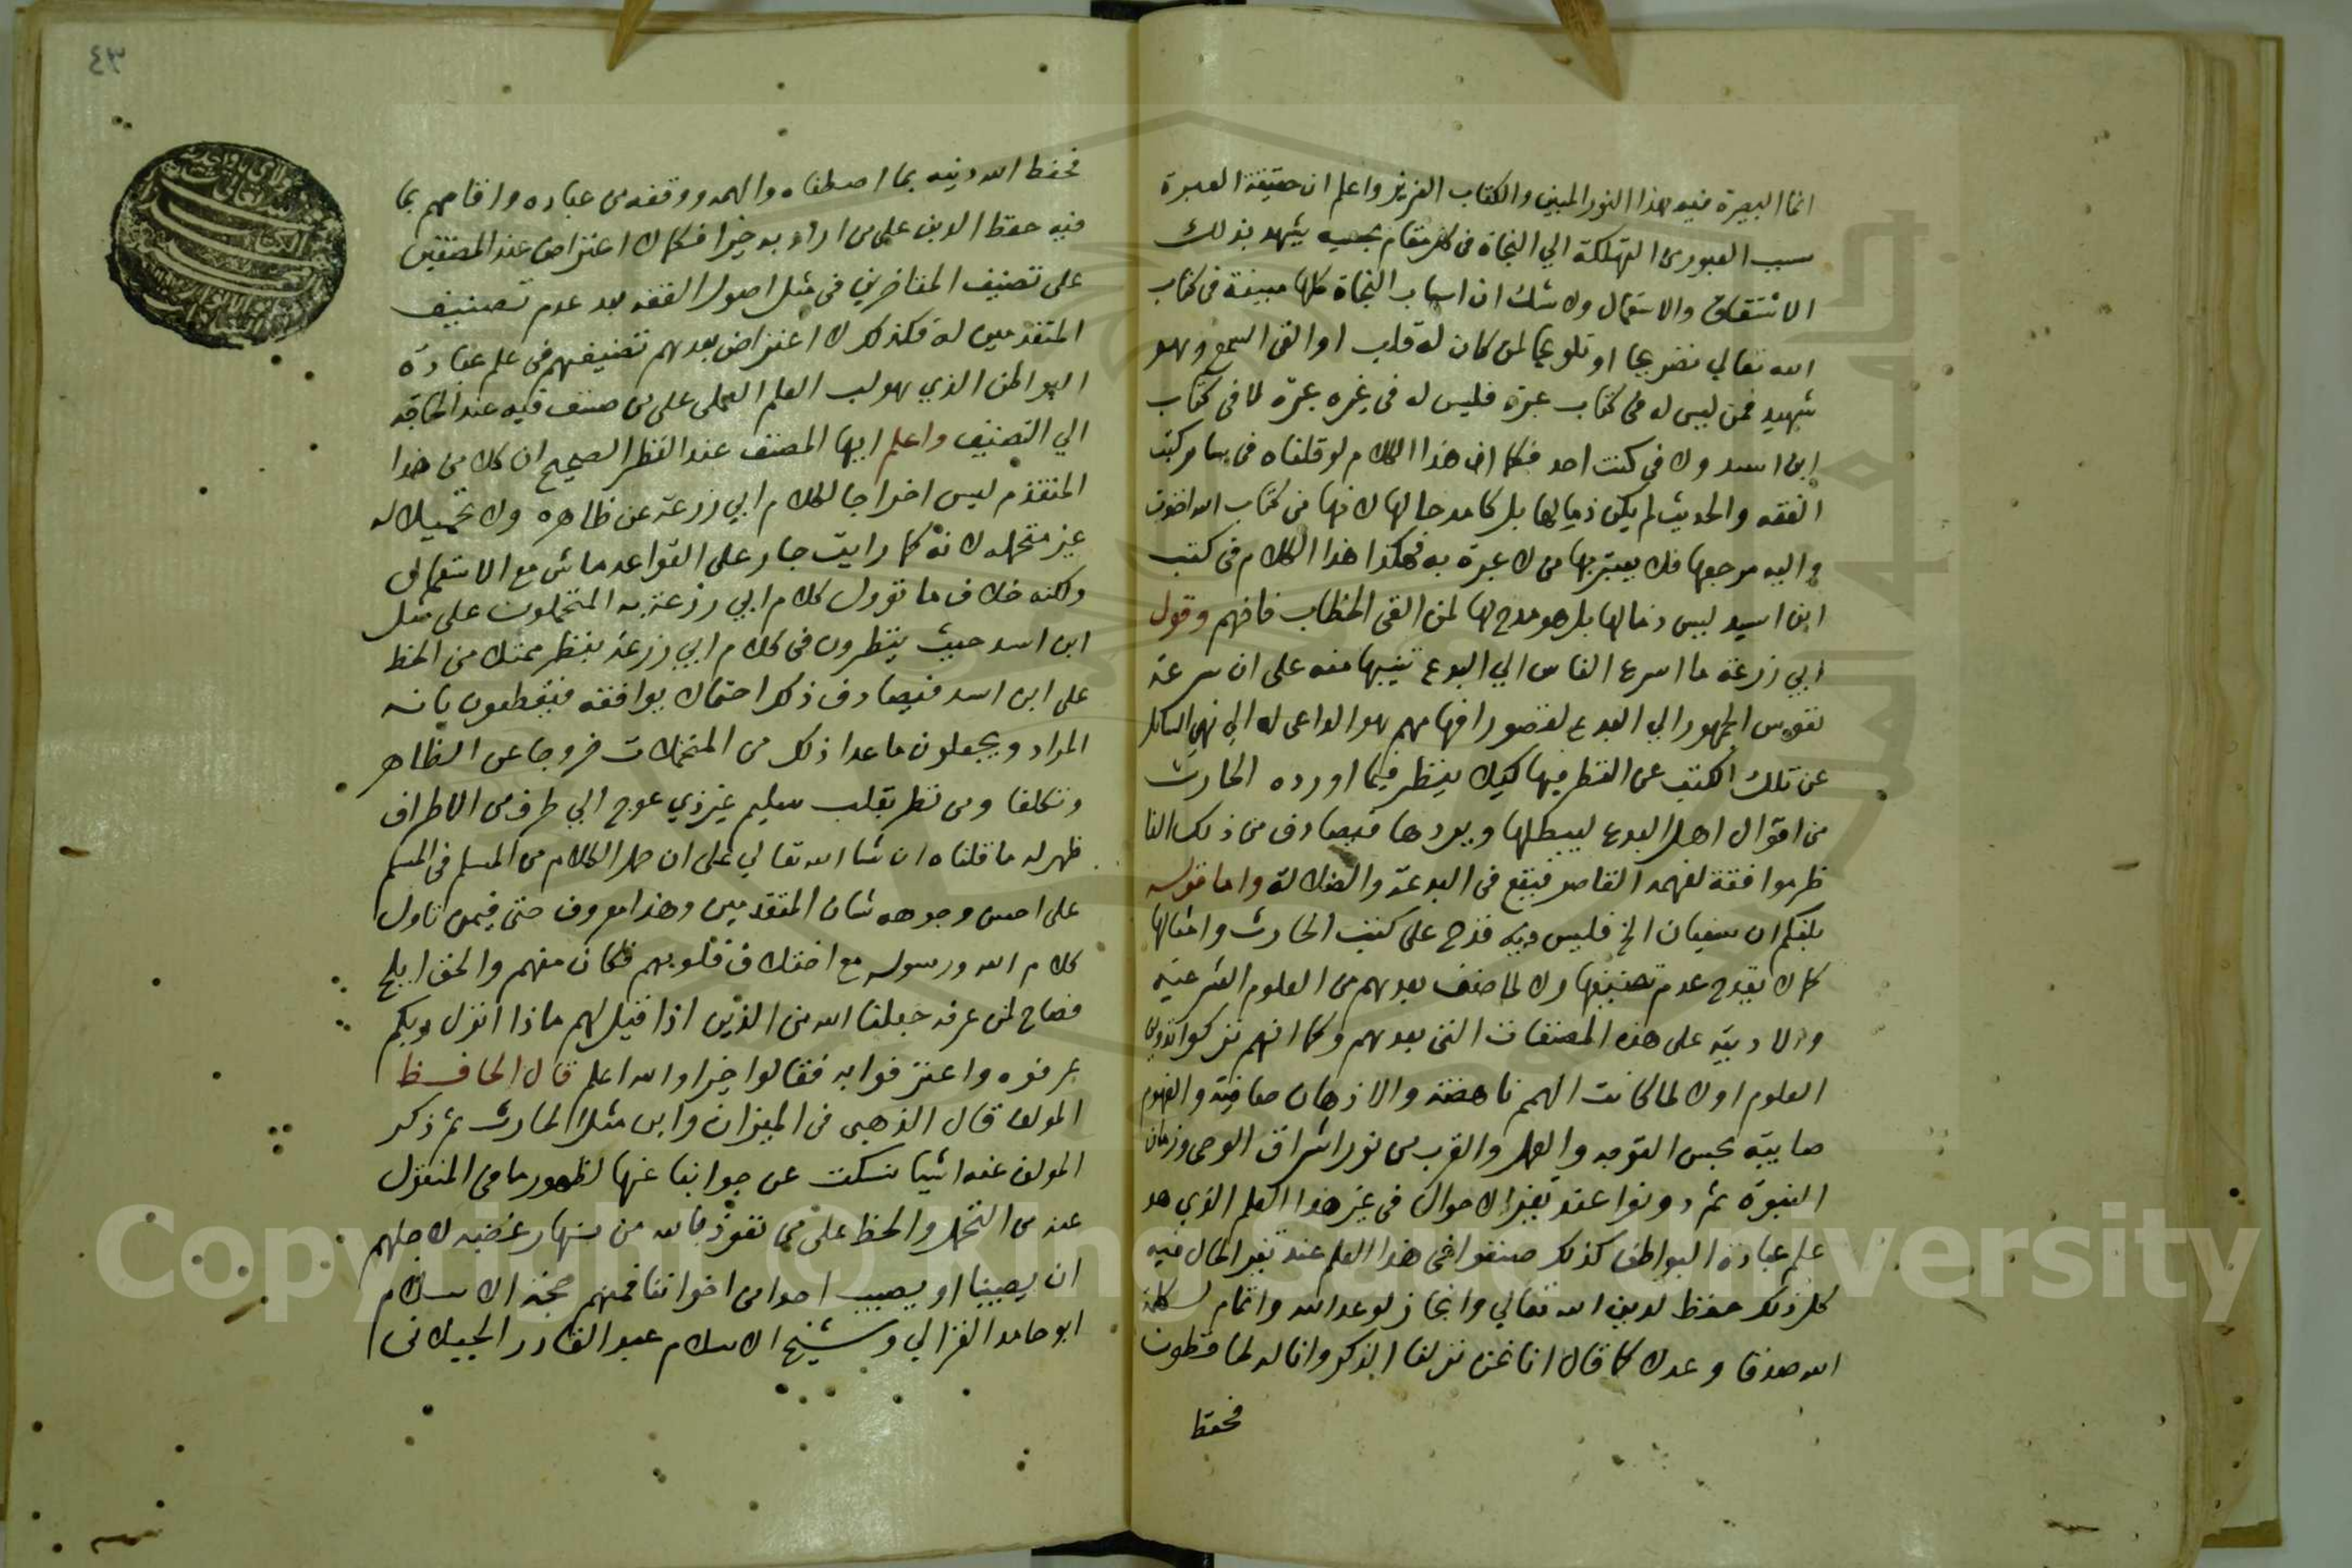 انما البصيرة فيه هذا النور المبين والكتاب العزيز واعلم ان حقيقة العبرة
سبب العبور من التهلكة الي النجاة في كل مقام بحسبه يشهد بذلك
الاشتقاق والاستعمال ولا شك ان اسباب النجاة كلها مبينة في كتاب
الله تعالي تصريحا او تلويحا لمن كان له قلب او القى السمع وهو
شهيد فمن ليس له في كتاب عبرة فليس له في غيره عبرة لا في كتاب
ابن اسد ولا في كتب احد فكما ان هذا الكلام لو قلناه في ساير كتب
الفقه والحديث لم يكن ذما لها بل كا مدحا لها لانها من كتاب الله اخذت
واليه مرجعها فلا يعتبر بها من لا عبرة به فهكذا هذا الكلام في كتب
ابن اسد ليس ذما لها بل هو مدح لها لمن القى الخطاب فافهم وقول
ابي زرعة ما اسرع الناس الي البدع تنبيها منه على ان سرعة
نفوس الجمهور الي البدع لقصور افهامهم هو الداعي له الي نهي السائل
عن تلك الكتب عن النظر فيها كيلا ينظر فيما اورده الحارث
من اقوال اهل البدع ليبطلها ويردها فيصادف من ذلك النا
ظر موافقة لفهمه القاصر فيقع في البدعة والضلالة واما قوله
بلغكم ان سفيان الخ فليس فيه قدح على كتب الحارث وامثالها
كما لا يقدح عدم تصنيفها ولا لما صنف بعدهم من العلوم الشرعية
والادبية على هذه المصنفات التي بعدهم وكما انهم تركوا تدوين
العلوم اولا لما كانت الهمم ناهضة والاذهان صافية والفهوم
صايبة بحسن التوجه والعمل والقرب من نور اشراق الوحي وزمان
النبوة ثم دونوا عند تغير الاحوال في غير هذا العلم الذي هو
علم عبادة البواطن كذلك صنفوا في هذا العلم عند تغير الحال فيه
كل ذلك حفظ لدين الله تعالي وانجاز لوعد الله واتمام لكلمة
الله صدقا وعدلا كما قال انا نحن نزلنا الذكر وانا له لحافظون
فحفظ
٤٣
فحفظ الله دينه بما اصطفاه والهمه ووفقه من عباده واقامهم بما
فيه حفظ الدين على من اراد به خيرا فكما لا اعتراض عند المصنفين
على تصنيف المتاخرين في مثل اصول الفقه بعد عدم تصنيف
المتقدمين له فكذلك لا اعتراض بعدهم تصنيفهم في علم عبادة
البواطن الذي هو لب العلم العملي على من صنف فيه عند الحاجة
الي التصنيف واعلم ايها المصنف عند النظر الصحيح ان كلا من هذا
المتقدم ليس اخراجا لكلام ابي زرعة عن ظاهره ولا تحميلا له
غير متحمله لانه كما رايت جار على القواعد ماش مع الاستعمال
ولكنه خلاف ما تؤول كلام ابي زرعة به المتحملون على مثل
ابن اسد حيث ينظرون في كلام ابي زرعة بنظر ممتلئ من الحط
على ابن اسد فيصادف ذكر احتمال يوافقه فيقطعون بانه
المراد ويجعلون ما عدا ذلك من المتحملات خروجا عن الظاهر
وتكلفا ومن نظر بقلب سليم غير ذي عوج الي طرف من الاطراف
ظهر له ما قلناه ان شا الله تعالي على ان حمل الكلام من المسلم في المسلم
على احسن وجوهه شان المتقدمين وهذا معروف حتى فيمن تاول
كلام الله ورسوله مع اختلاف قلوبهم فكان منهم والحق ابلج
فصاح لمن عرفه جعلنا الله من الذين اذا قيل لهم ماذا انزل ربكم
عرفوه واعترفوا به فقالوا خيرا والله اعلم قال الحافظ
المولف قال الذهبي في الميزان واين مثل الحارث ثم ذكر
المولف عنه اشيا نسكت عن جوابنا عنها لظهور ما في المنقول
عنه من التحمل والحط على من نعوذ بالله من غضبه لاجلهم
ان يصيبنا او يصيب احدا من اخواننا فمنهم حجة الاسلام
ابو حامد الغزالي وشيخ الاسلام عبد القادر الجيلاني
Copyright © King Saud University